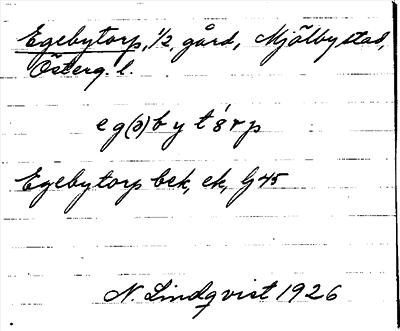 Egebytorp, 1/2, gård, Mjölby stad,
Österg. l.
eg(ə)byt'8rp
Egebytorp bek, ek, G 45
N. Lindqvist 1926